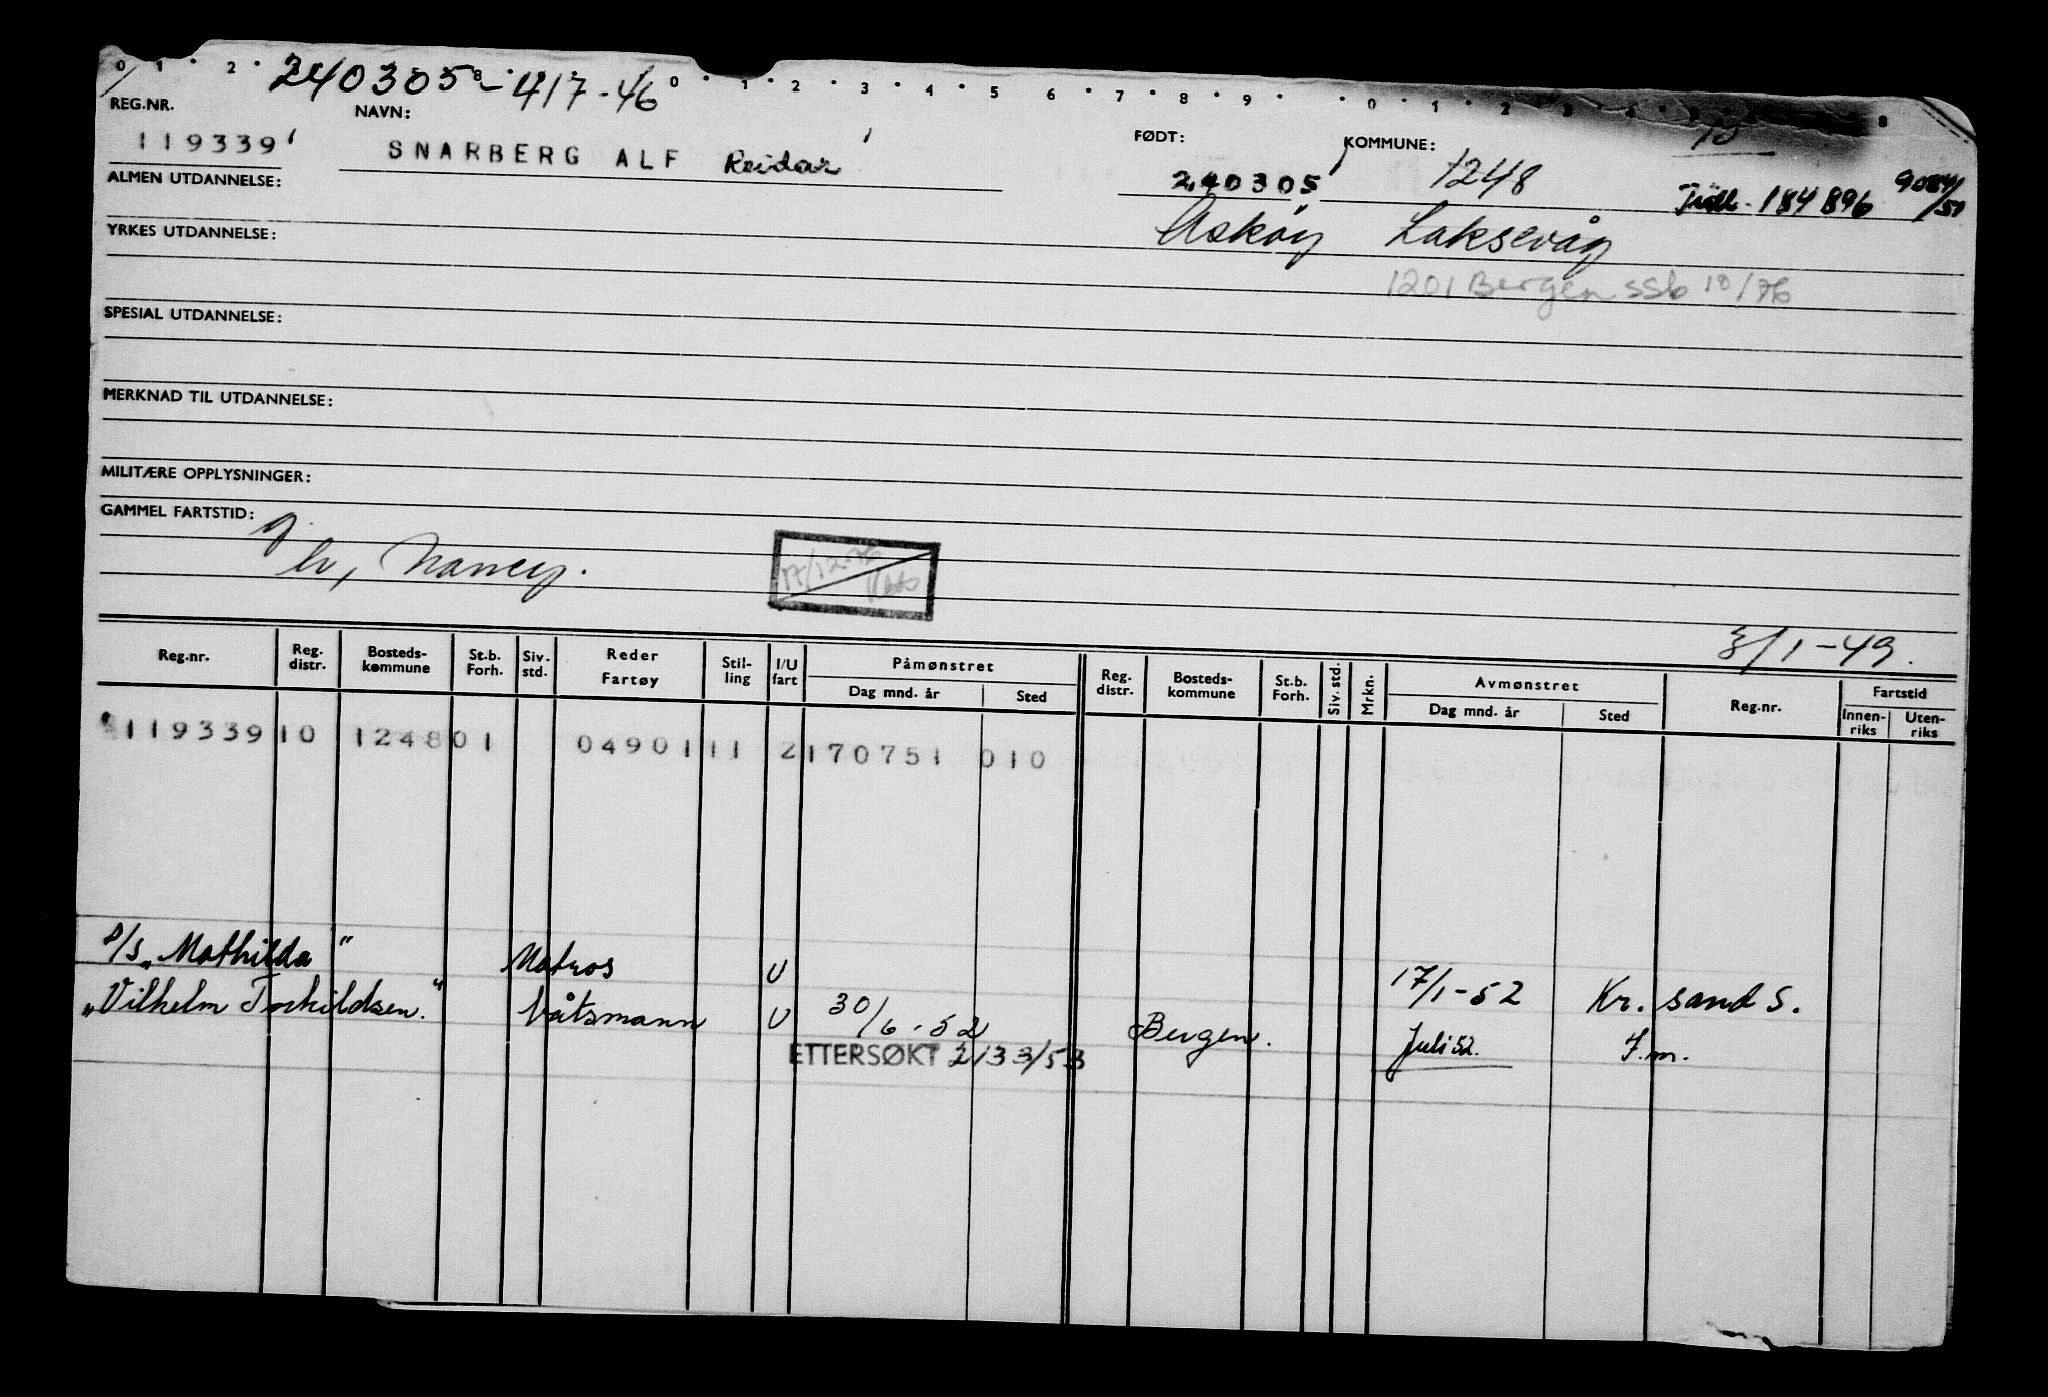 0 1 2 8 0 1 2 3 4 5 6 7 8 9 0 1 2 3 4 8
240305-417-46
REG.NR. NAVN: FØDT: KOMMUNE: 10
119339 SNARBERG ALF Reidar 240305 1248 184896 9084/51
ALMEN UTDANNELSE: Askøy Laksevåg
YRKES UTDANNELSE: 1201 Bergen ssb 18/76
SPESIAL UTDANNELSE:
MERKNAD TIL UTDANNELSE:
MILITÆRE OPPLYSNINGER:
GAMMEL FARTSTID:
lv, Nancy. 17/12-76
3/1-49.
Reg.nr. Reg. distr. Bosteds- kommune St.b. Forh. Siv. std. Reder Fartøy Stil- ling I/U fart Påmønstret Dag mnd. år Sted Reg. distr. Bosteds- kommune St.b. Forh. Siv. std. Mrkn. Avmønstret Dag mnd. år Sted Reg.nr. Fartstid Innen- riks Uten- riks
119339 10 1248 01 04901 11 2 170751 010
D/S „Mathilda" Matros U 17/1-52 Kr.sand S.
„Vilhelm Torkildsen." båtsmann U 30/6-52 Bergen. Juli 52. F.m.
ETTERSØKT 2133/53